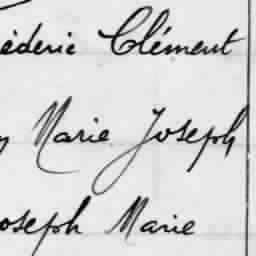 éderic Clément
y Marie Joseph
oseph Marie